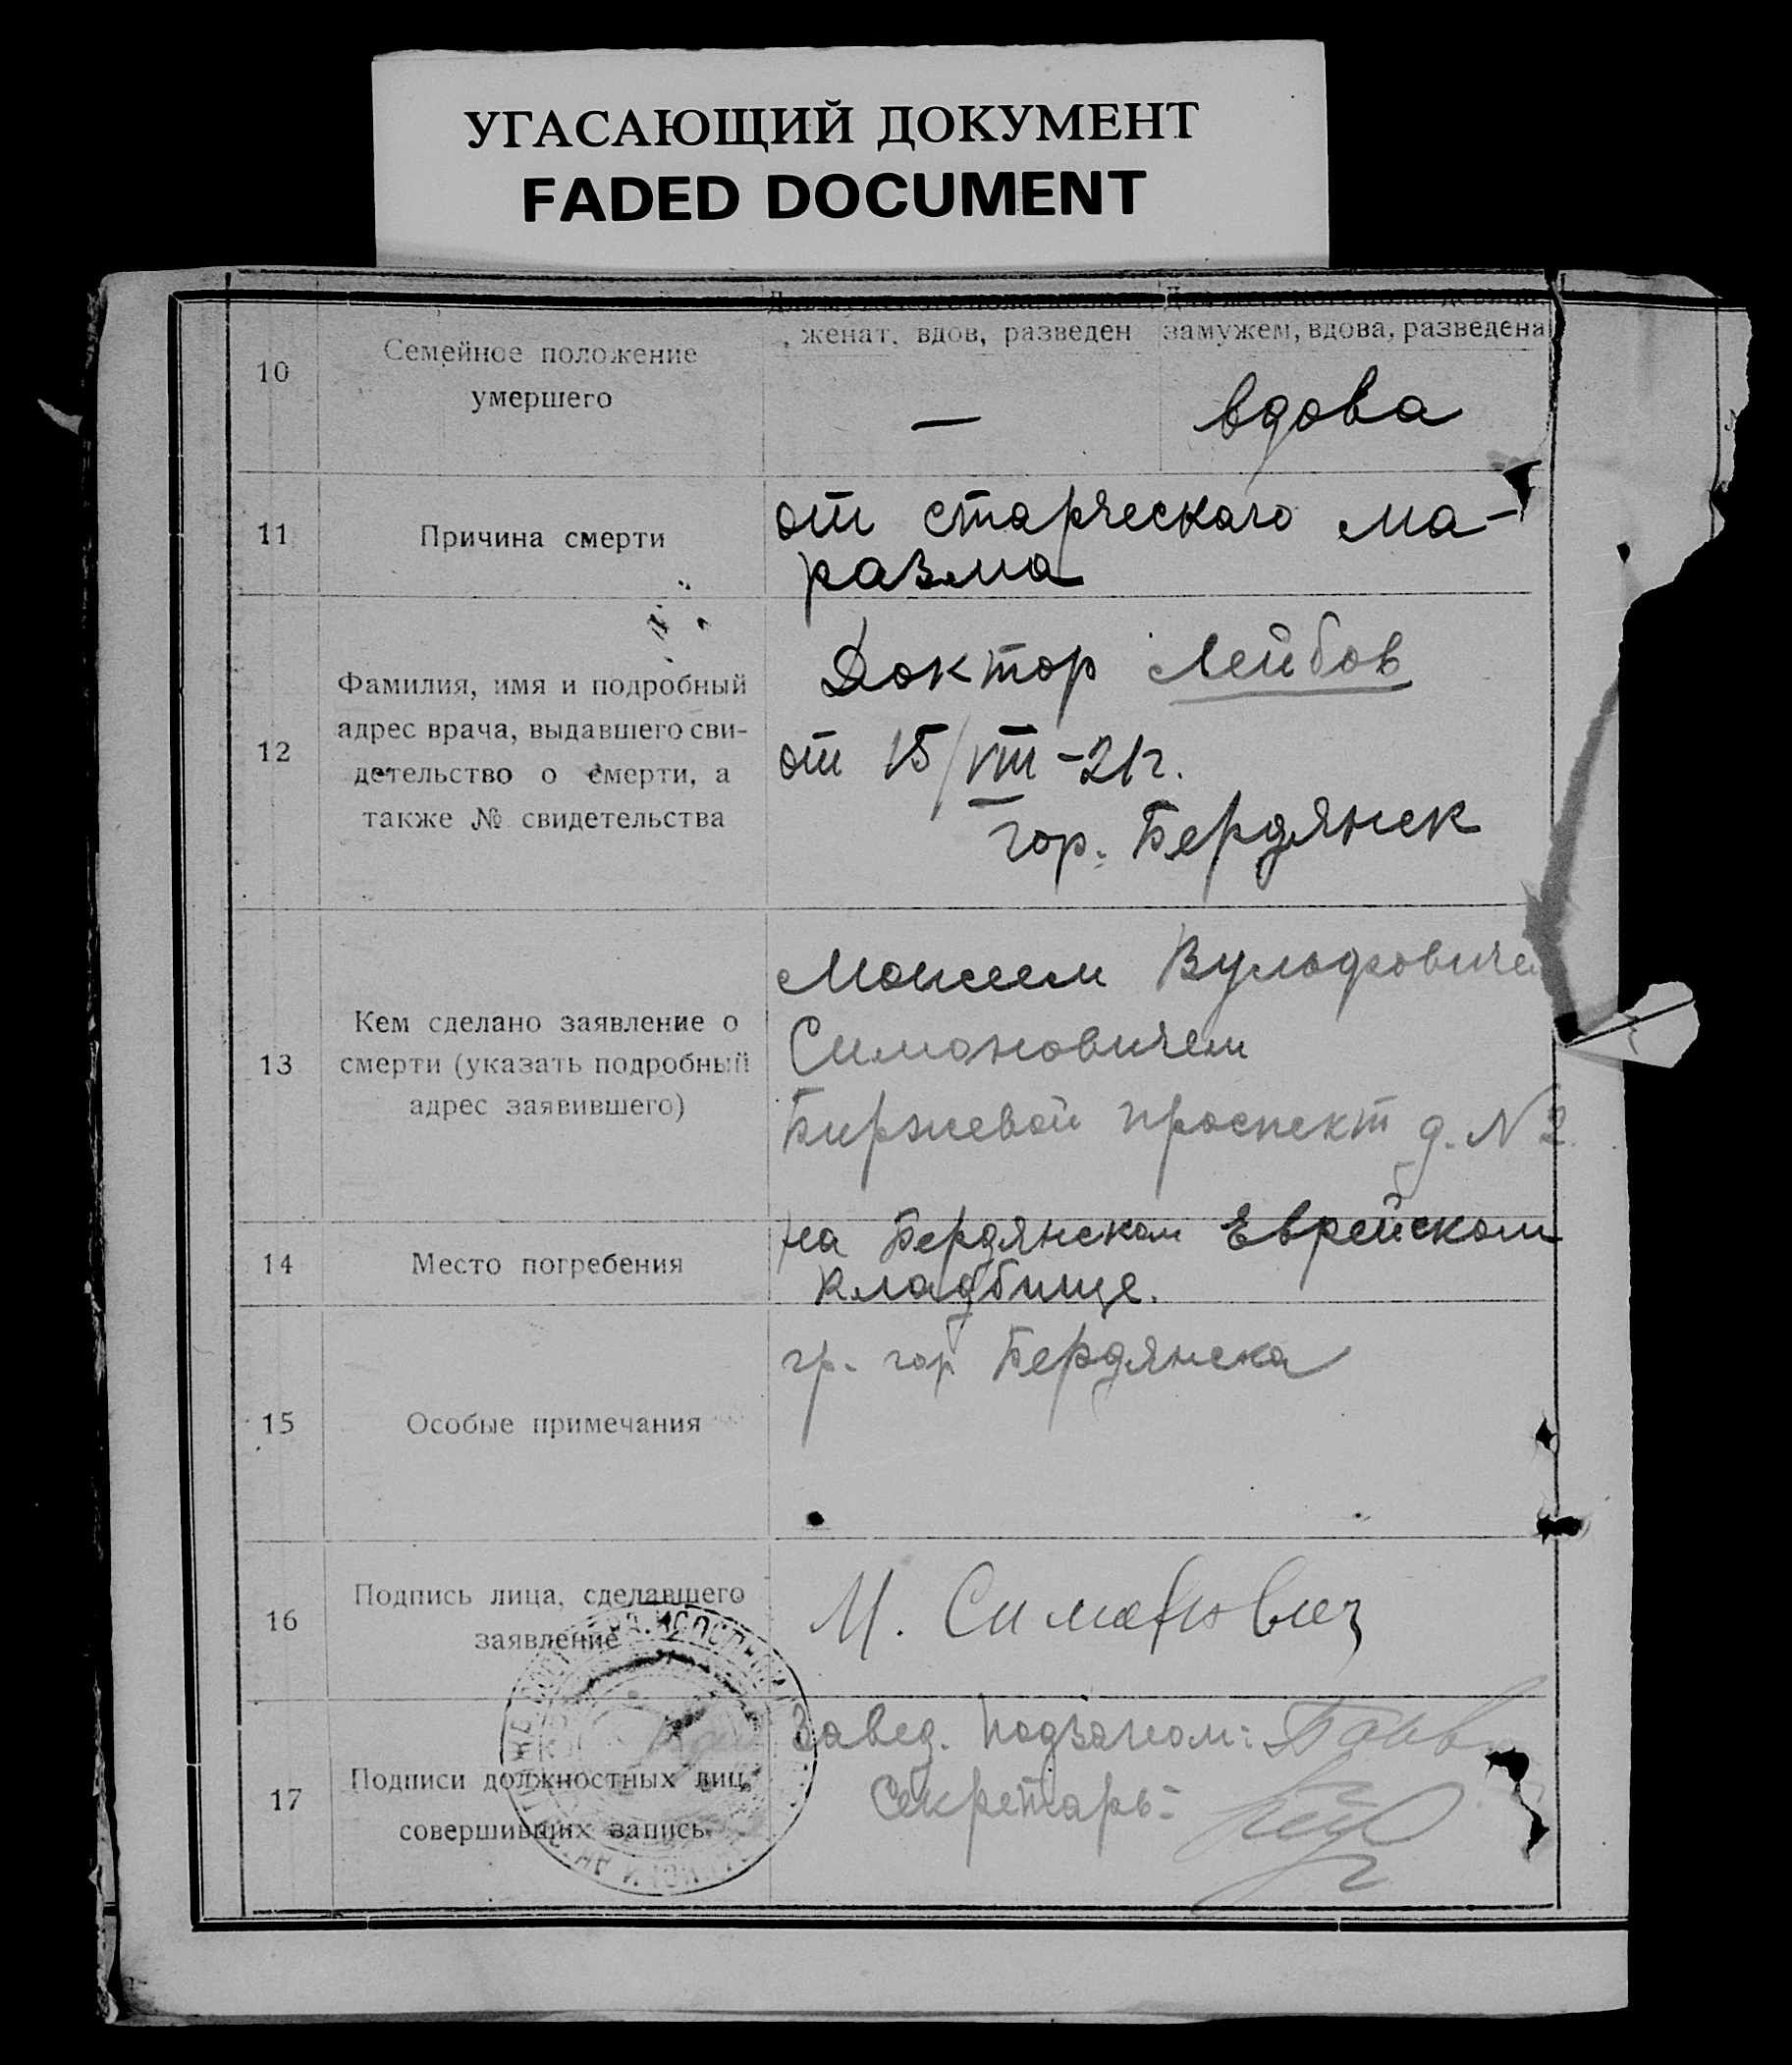 УГАСАЮЩИЙ ДОКУМЕНТ
FADED DOCUMENT
, женат, вдов, разведен
замужем, вдова, разведена
10
Семейное положение
умершего
—
вдова
11
Причина смерти
от старческаго ма-
разма
12
Фамилия, имя и подробный
адрес врача, выдавшего сви-
детельство о смерти, а
также № свидетельства
Доктор Лейбов
от 15/VIII-21г.
гор. Бердянск
13
Кем сделано заявление о
смерти (указать подробный
адрес заявившего)
Моисеем Вульфовиче
Симоновичем
Биржевой проспект д. N 2
14
Место погребения
на Бердянском Еврейском
кладбище.
15
Особые примечания
гр. гор Бердянска
16
Подпись лица, сделавшего
заявление
М. Симонович
17
Подписи должностных лиц,
совершивших запись
Завед. Подзагсом:
Секретарь-